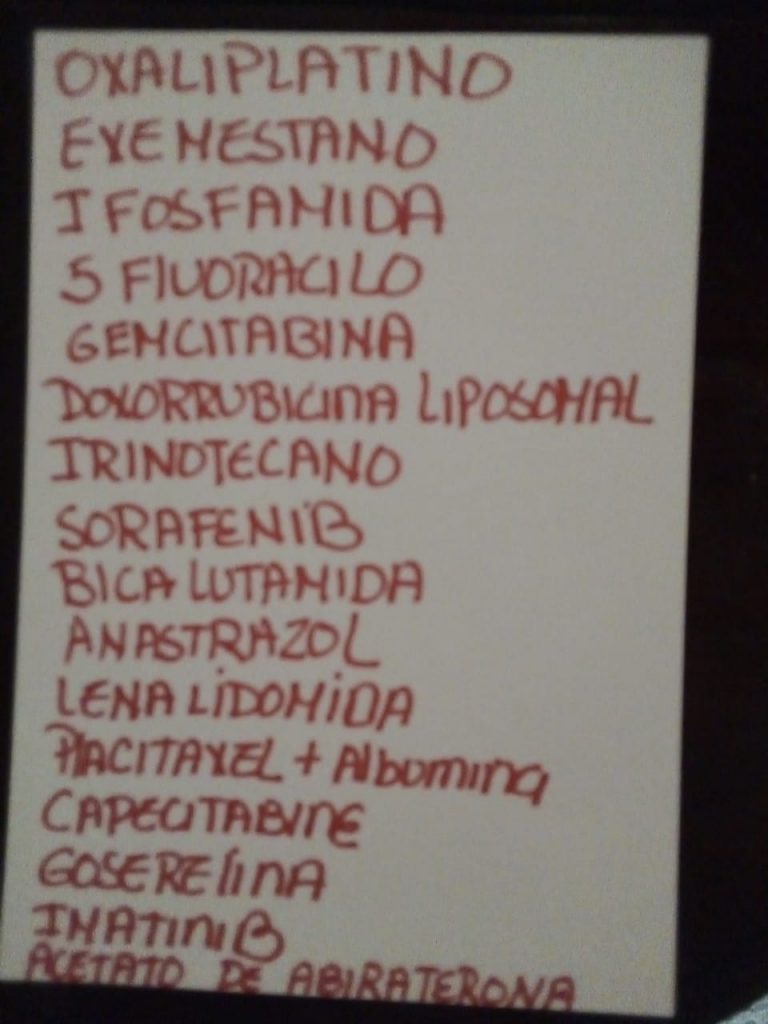 OXALIPLATINO
EXEMESTANO
IFOSFAMIDA
5 FlUORACILO
GEMCITABINA
DOXORRUBICINA LIPOSOMAL
IRINOTECANO
SORAFENIB
BICALUTAMIDA
ANASTRAZOL
LENALIDOMIDA
PlACITAXEL + Albumina
CAPECITABINE
GOSERElinA
IMATINIB
ACETATO DE ABIRATERONA